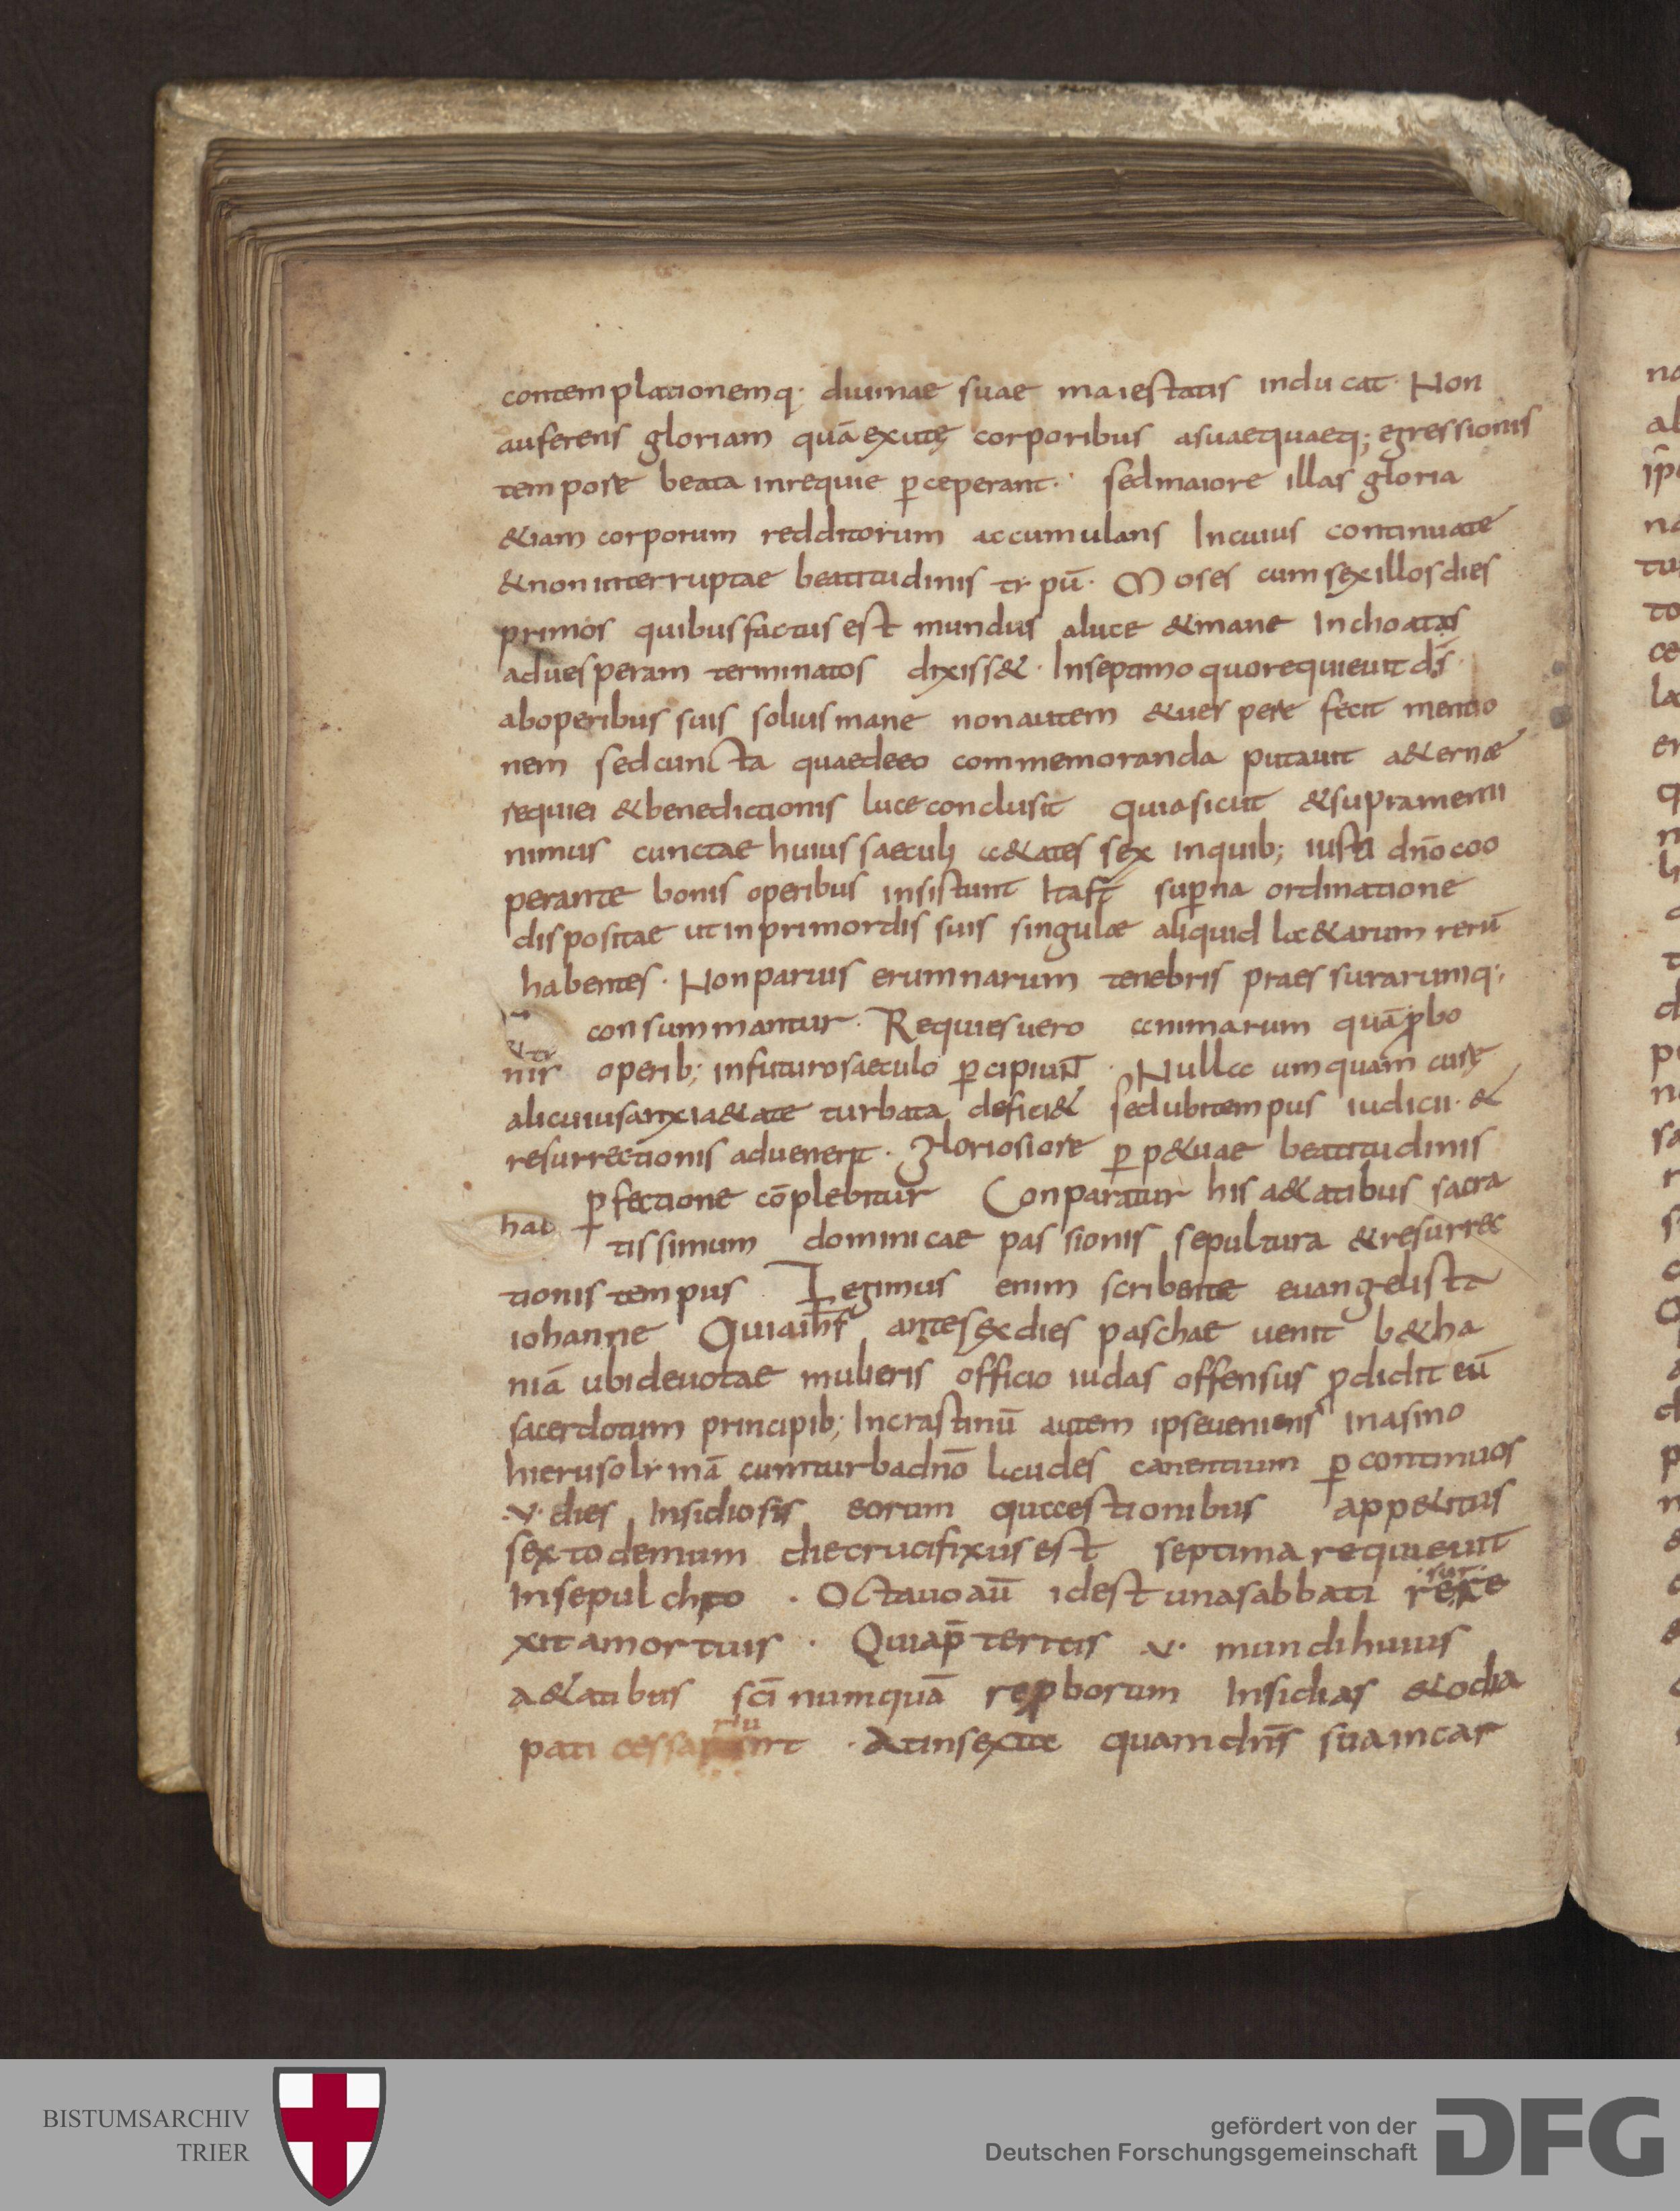 contemplationemq· diuinae suae maiestatis inducat· Non
auferens gloriam quā exutę corporibus asuaequaeq; egressionis
tempore beata inrequie ꝑceperant· sedmaiore illas gloria
&iam corporum redditorum accumulans Incuius continuate
&noninterruptae beatitudinis tr pū· Moses cumsexillosdies
primos quibusfactusest mundus aluce &mane Inchoatos
aduesperam terminatos dixiss&· Inseptimo quorequieuit d̄s·
aboperibus suis solius mane nonautem &uespere fecit mentio
nem sedcuncta quaedeeo commemoranda putauit a&ernae
requiei &benedictionis luceconclusit quiasicut &suprameni
nimus cunctae huius saeculi a&ates sex inquib; iusti dn̄o coo
perante bonis operibus insistunt Ita suꝑna ordinatione
dispositae utinprimordis suis singulae aliquid lae&arum rerū
habentes· Nonparuis erumnarum tenebris praessurarumq;
consummantur· Requiesuero animarum quāꝓbo
nis operib; infuturosaeculo ꝑcipiunt· Nulla umquam curę
alicuiusanxia&ate turbata defici& sedubitempus iudicii· &
resurrectionis aduenerit· gloriosiore ꝑp&uae beatitudinis
ꝑfectione cōplebitur Conparatur his a&atibus sacra
hac tissimum dominicae passionis sepultura &resurrec
tionis tempus Legimus enim scribente euangelista
iohanne Quiaih̄s antesexdies paschae uenit b&ha
niā ubideuotae mulieris officio iudas offensus ꝓdidit eū
sacerdotum principib; Incrastinū autem ipseueniens inasino
hierusolimā cumturbadn̄o laudes canentium ꝑcontinuos
·v· dies Insidiosis eorum quaestionibus app&itus
sexto demum die crucifixusest septima requieuit
Insepulchro· Octauoaū idest unasabbati resurre
xit amortuis· Quiap̄ teritis ·v· mundihuius
a&atibus sc̄i numquā reꝓborum Insidias &odia
pati cessarunt· Atinsexta quamdn̄s suaincar
BISTUMSARCHIV
TRIER
gefördert von der
Deutschen Forschungsgemeinschaft
DFG